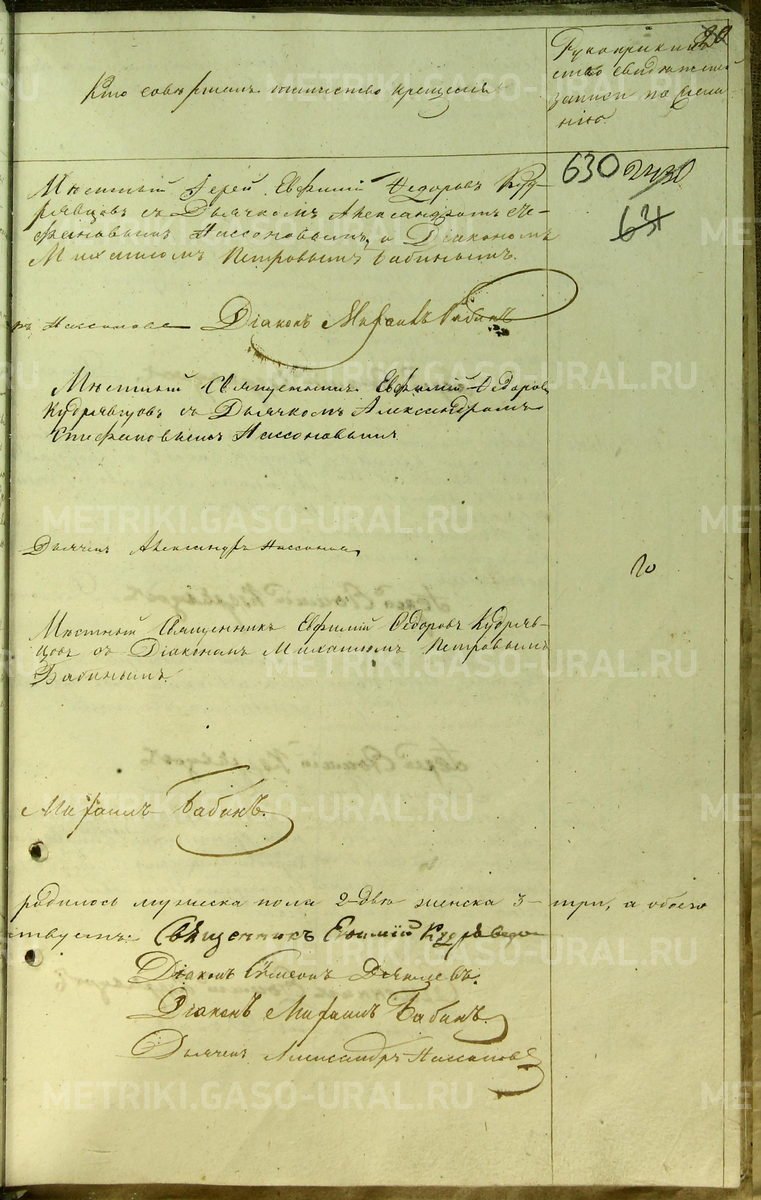 20
Кто совершалъ таинство крещенія
Рукоприклад
ство свидѣтелей
записи по жела-
нію.
630
631
Мѣстный Іерей Евфимій Ѳедоровъ Кудр-
рявцовъ съ Дьячкомъ Александромъ Сте-
фановымъ Нассоновымъ, и Діакономъ
Михаиломъ Петровымъ Бабинымъ.
Діаконъ Михаилъ Бабинъ
Мѣстный Священникъ Евфимій Ѳедоровъ
Кудрявцовъ съ Дьячкомъ Александромъ
Стефановымъ Нассоновымъ
Дьячекъ Александръ Нассоновъ
Мѣстный Священникъ Евфимій Ѳедоровъ Кудряв-
цовъ съ Діакономъ Михаиломъ Петровымъ
Бабинымъ.
Михаилъ Бабинъ.
родилось мужеска пола 2-двѣ женска 3-три, а обоего
ствуемъ: Священникъ Евѳимій Кудрявцовъ
Діаконъ Симеонъ
Діаконъ Михаилъ Бабинъ.
Дьячекъ Александръ Нассоновъ
METRIKI.GASO-URAL.RU